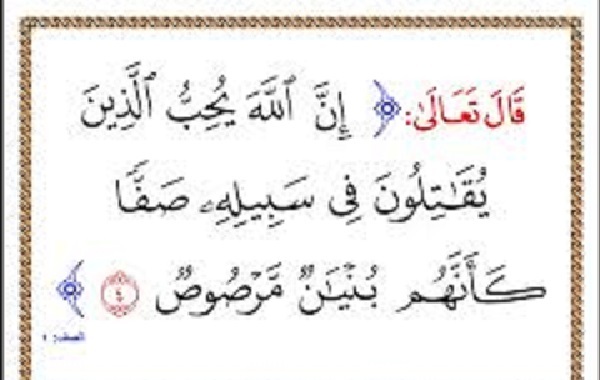 قَالَ تَعَالَىٰ: ﴿ إِنَّ ٱللَّهَ يُحِبُّ ٱلَّذِينَ
يُقَٰتِلُونَ فِى سَبِيلِهِۦ صَفًّا
كَأَنَّهُم بُنْيَٰنٌ مَّرْصُوصٌ ٤ ﴾
الصف: ٤